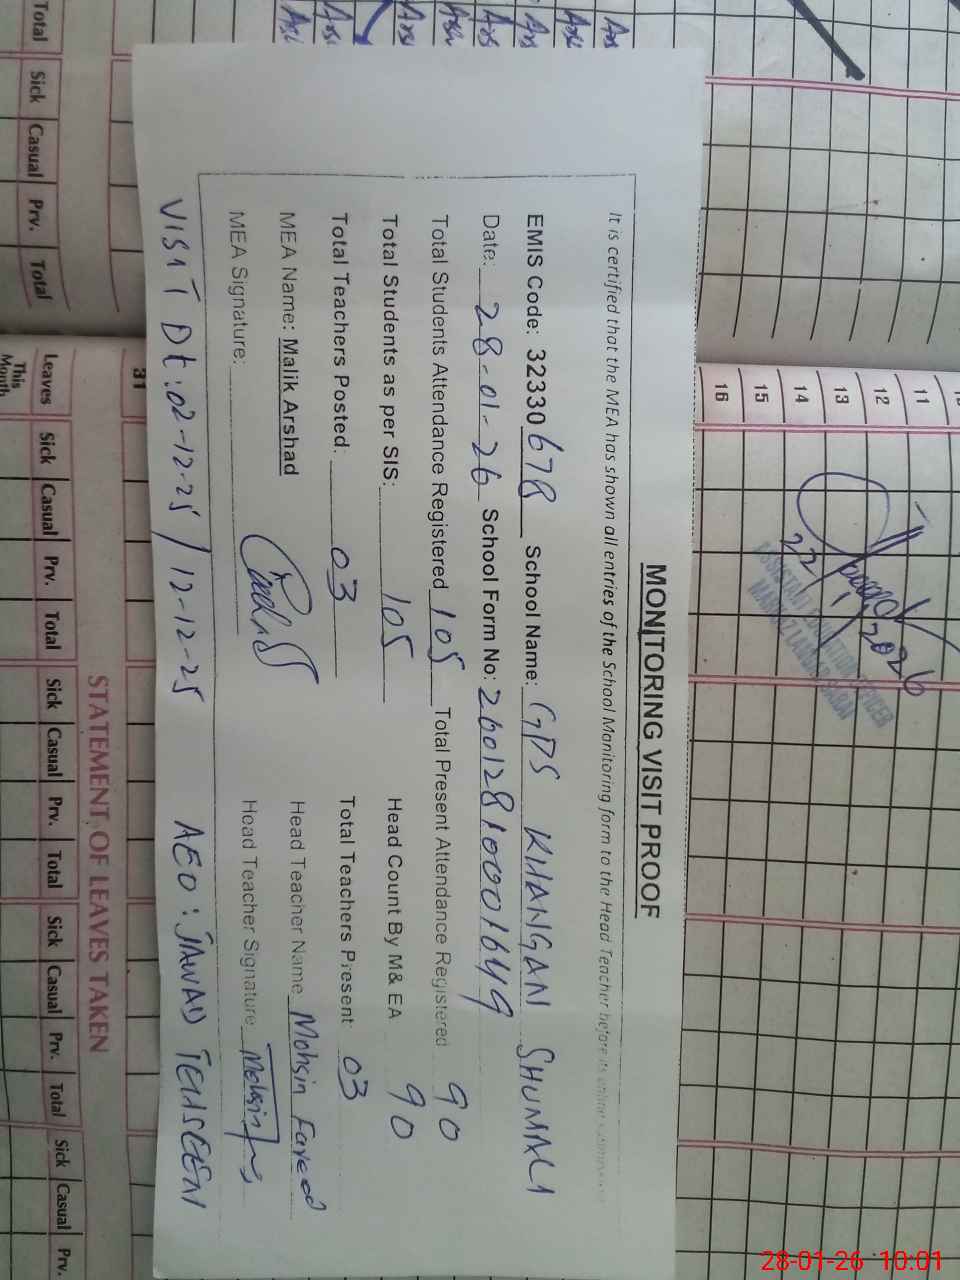 MONITORING VISIT PROOF
It is certified that the MEA has shown all entries of the School Monitoring form to the Head Teacher before its online submission
EMIS Code: 32330678 School Name: GPS KHANGAN SHUMALI
Date: 28-01-26 School Form No: 26012810001649
Total Students Attendance Registered 105 Total Present Attendance Registered 90
Total Students as per SIS: 105 Head Count By M& EA 90
Total Teachers Posted: 03 Total Teachers Present 03
MEA Name: Malik Arshad Head Teacher Name Mohsin Fareed
MEA Signature: Head Teacher Signature Mohsin
VISIT Dt: 02-12-25 / 12-12-25 AEO: JAWAD TEHSEEN
11
12
13
14
15
16
31
ASSISTANT EDUCATION OFFICER
STATEMENT OF LEAVES TAKEN
Total Sick Casual Prv. Total
Leaves This Month Sick Casual Prv. Total Sick Casual Prv. Total Sick Casual Prv. Total Sick Casual Prv.
28-01-26 10:01